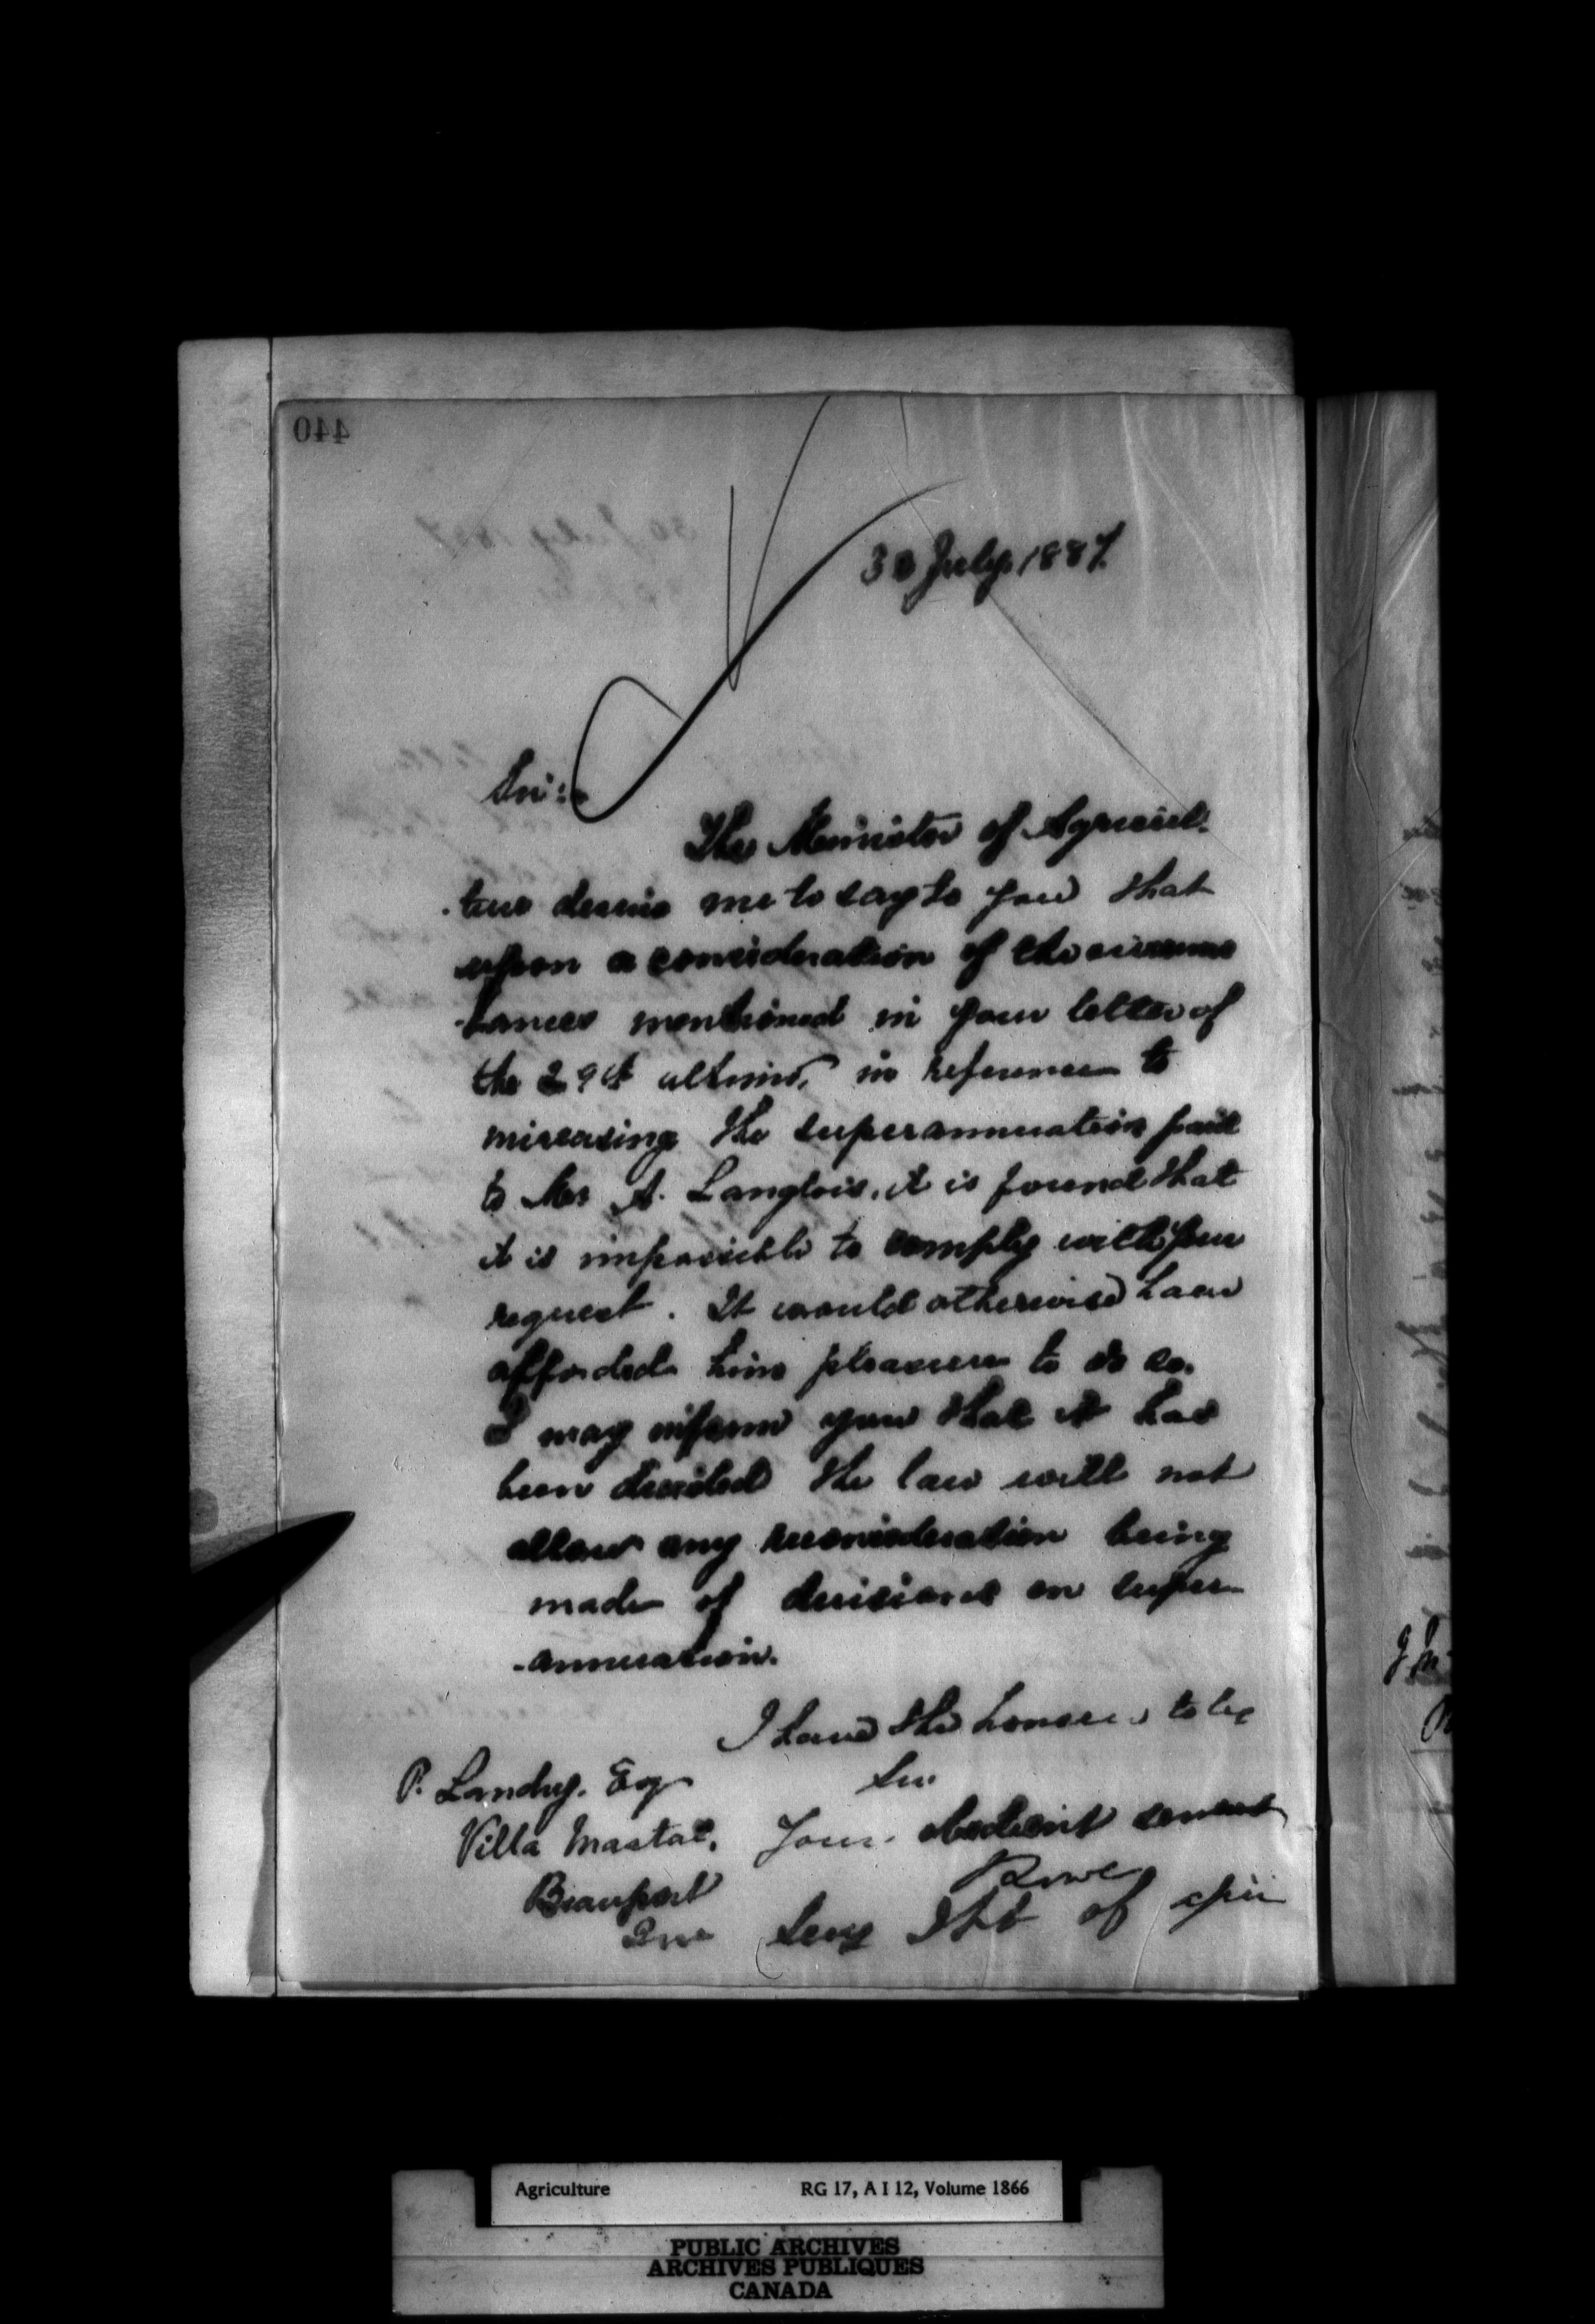 440
30 July 1887.
Sir:
The Minister of Agricul-
-ture desires me to say to you that
upon a consideration of the circums
-tances mentioned in your letter of
the 29th ultimo, in reference to
increasing the superannuation paid
to Mr A. Langlois, it is found that
it is impossible to comply with your
request. It would otherwise have
afforded him pleasure to do so.
I may inform you that it has
been decided the law will not
allow any reconsideration being
made of decisions on super
-annuation.
I have the honour to be
Sir
P. Landry. Esq
Your obedient servant
Villa Mastai,
Beauport
Que
Secy Dpt of
Agriculture
RG 17, A I 12, Volume 1866
PUBLIC ARCHIVES
ARCHIVES PUBLIQUES
CANADA